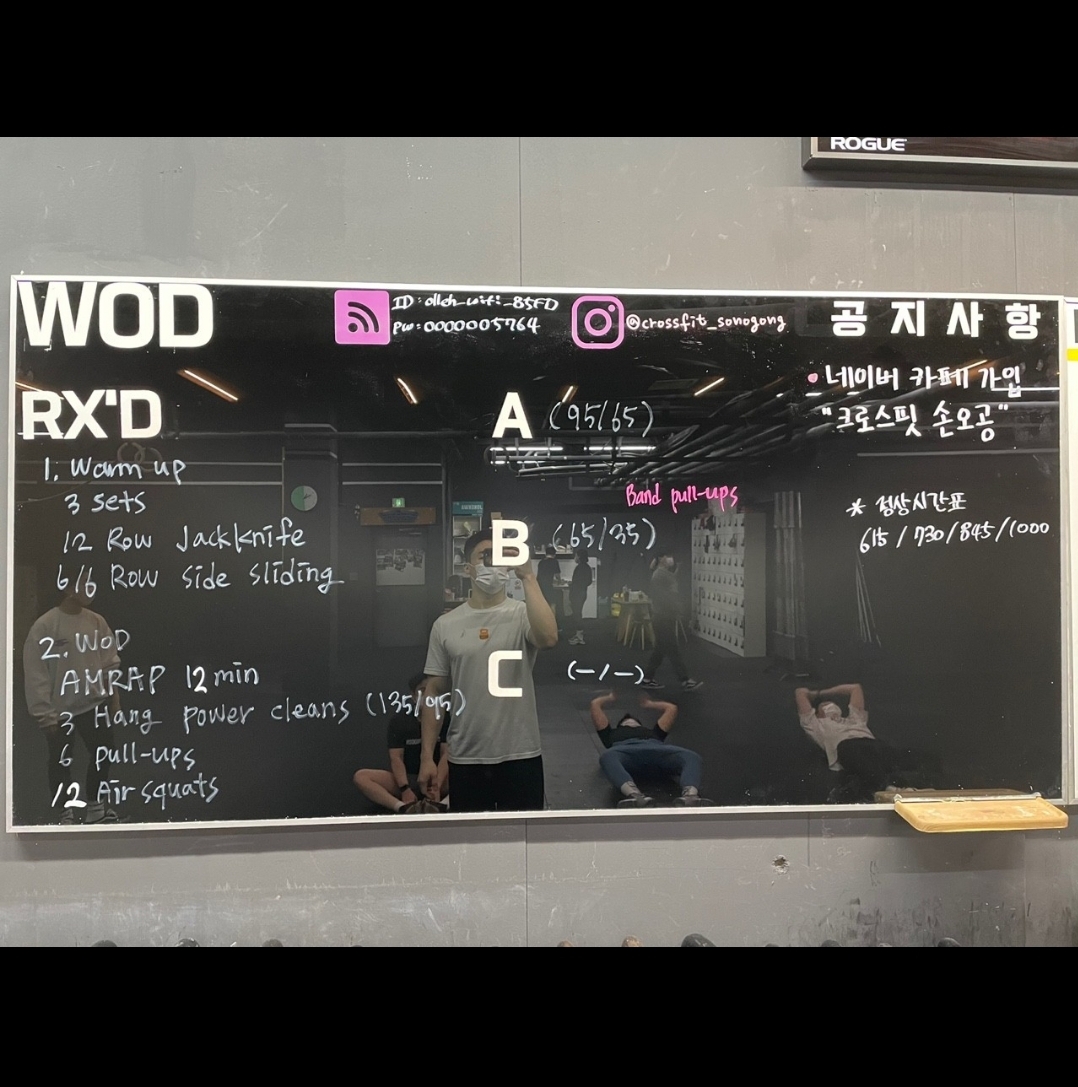 ROGUE
WOD
ID: olleh_wifi_85FD
PW: 0000005764
@crossfit_sonogong
공지사항
• 네이버 카페 가입
"크로스핏 손오공"
* 정상시간표
615 / 730 / 845 / 1000
RX'D
1. Warm up
3 sets
12 Row Jackknife
6/6 Row side sliding
2. WOD
AMRAP 12 min
3 Hang power cleans (135/95)
6 pull-ups
12 Air squats
A (95/65)
Band pull-ups
B (65/35)
C (-/-)